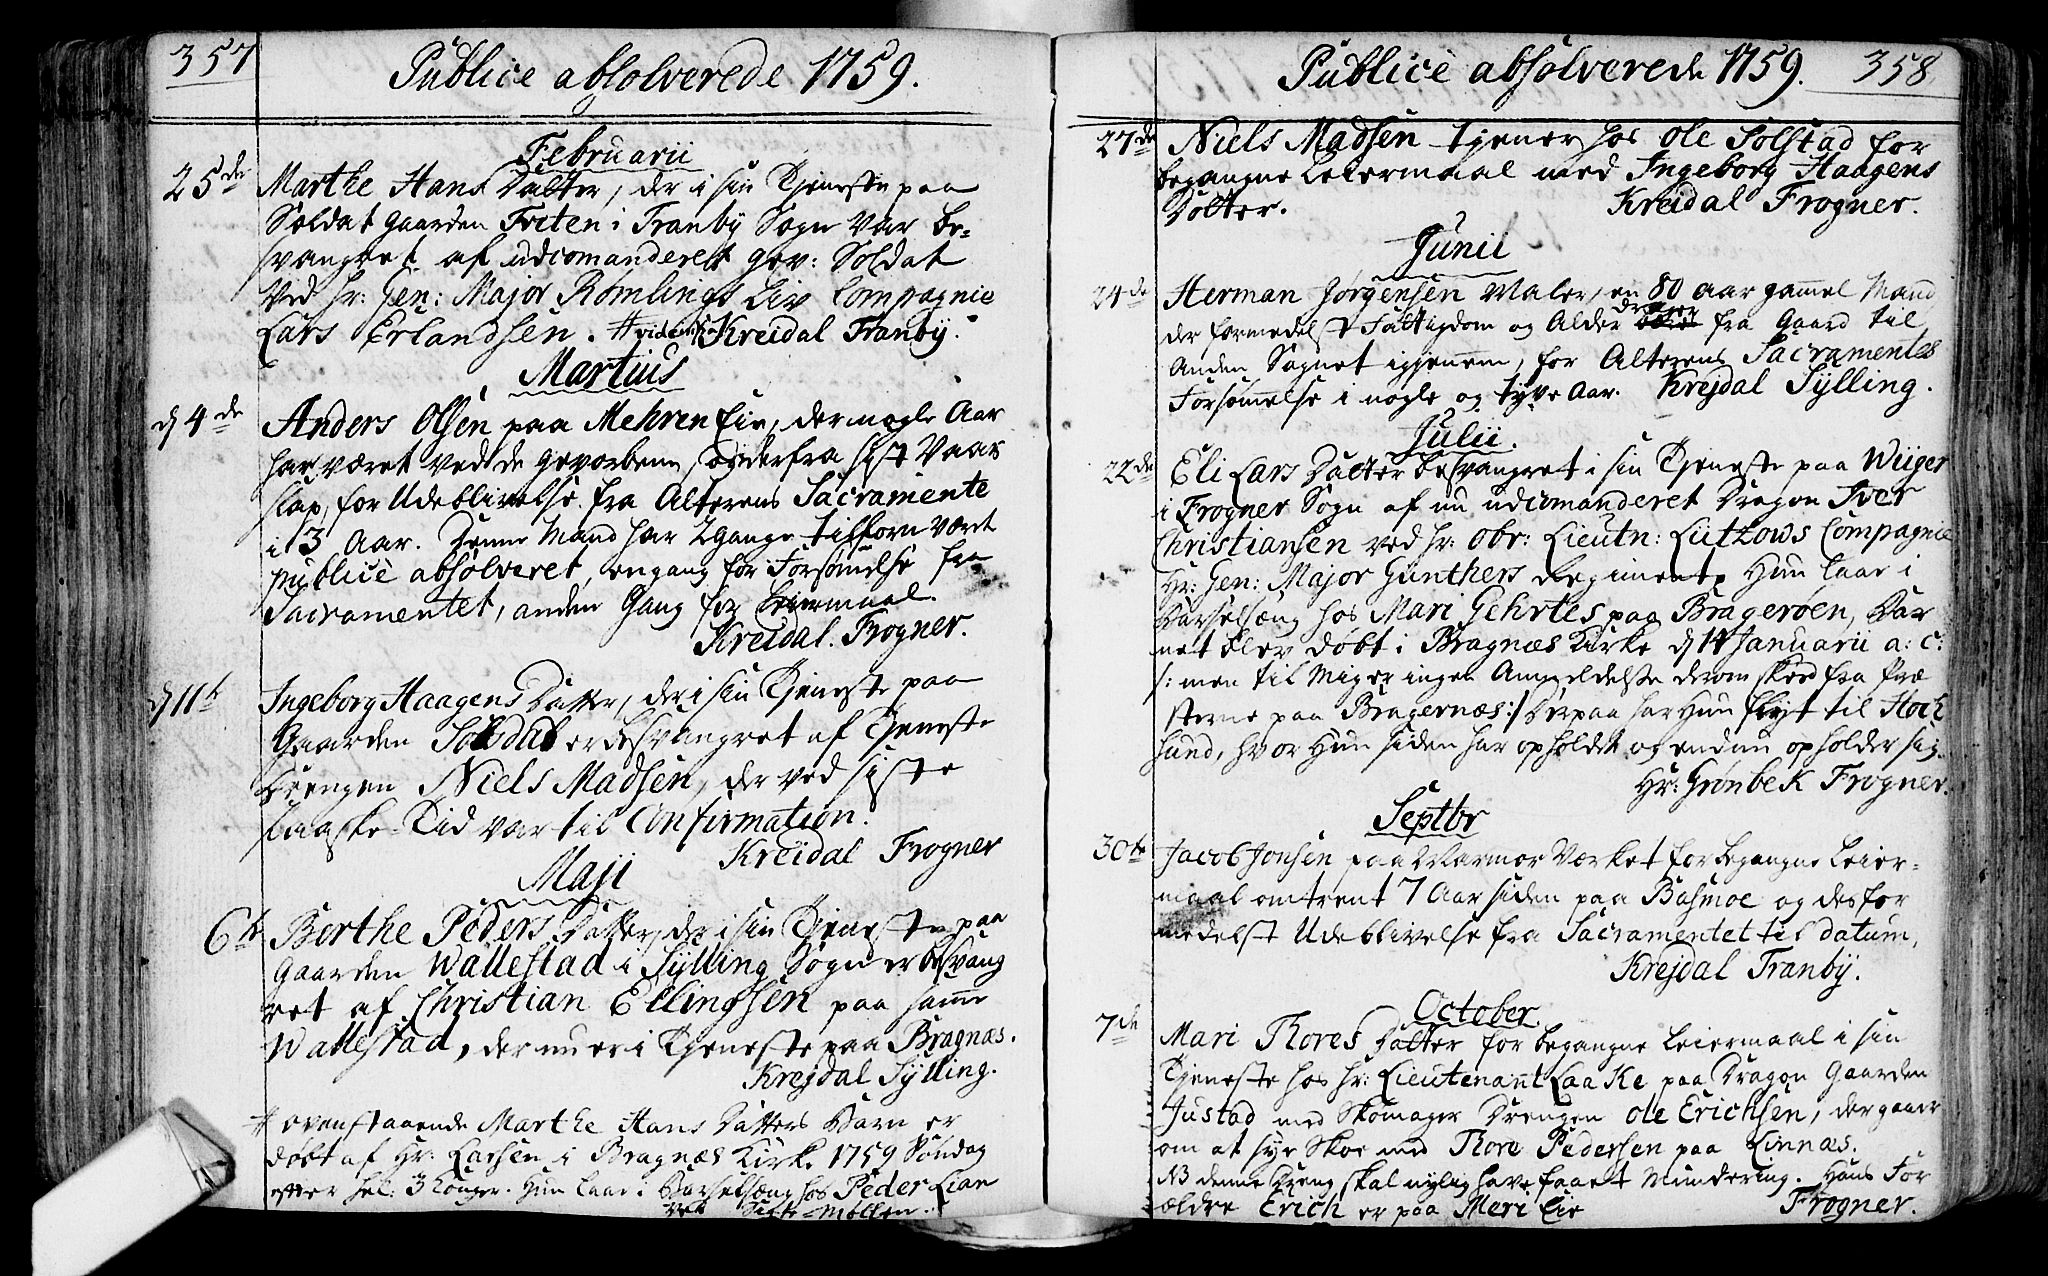 357
Publice absolverede 1759.
Februarii
25de Marthe Hans Datter, der i sin Tjeneste paa
Soldat Gaarden Tveten i Tranby Sogn var be-
svangret af udcomanderet gev: Soldat
ved hr: Gen: Major Rømlings Liv Compagnie
Lars Erlandsen. # vide infra Kreidal Tranby.
Martius
d 4de Anders Olsen paa Mehren Eie, der nogle Aar
har været ved de gevorbene, og derfra sist Vaar
slap, for Udeblivelse fra Alterens Sacramente
i 3 Aar. Denne Mand har 2 gange tilforn været
publicè absolveret, en gang for Forsømmelse fra
Sacramentet, anden Gang for Leiermaal.
Kreidal. Frogner.
d 11te Ingeborg Haagens Datter, der i sin Tjeneste paa
Gaarden Solstad er besvangret af Tjeneste
Drengen Niels Madsen, der ved siste
Paaske-Tid var til Confirmation.
Kreidal Frogner
Maji
6te Berthe Peders Datter, der i sin Tjeneste paa
Gaarden Wallestad i Sylling Sogn er besvang
ret af Christian Ellingsen paa samme
Wallestad, der nu er i Tjeneste paa Bragnæs.
Krejdal Sylling.
# ovenstaaende Marthe Hans Datters Barn er
døbt af Hr: Larsen i Bragnæs Kirke 1759 Søndag
efter hel: 3 Konger. Hun laae i Barselseng hos Peder Lian
ved Sigte-Møllen.
Publicè absolverede 1759. 358
27de Niels Madsen tjener hos Ole Solstad for
begangne Leiermaal med Ingeborg Haagens
Dotter. Kreidal Frogner.
Junii
24de Herman Jørgensen Maler, en 80 aar gammel Mand
der formedelst Fattigdom og Alder drager fra Gaard til
Anden Sognet igjennem, for Alterens Sacramentes
Forsømmelse i nogle og tyve Aar. Krejdal Sylling.
Julii.
22de Eli Lars Datter besvangret i sin Tjeneste paa Wiiger
i Frogner Sogn af nu udcomanderet Dragon Iver
Christiansen ved hr: Obr: Lieutn: Lützows Compagnie
Hr: Gen: Major Gunthers Regiment. Hun laae i
Barselseng hos Mari Gehrtes paa Bragerøen, Bar
net blev døbt i Bragnæs Kirke d 14 Januarii a: c:
/: men til Mig er ingen Anmeldelse derom skeed fra Præ
sterne paa Bragernæs :/ Derpaa har Hun flyt til Hoch
sund, hvor Hun siden har opholdet og endnu opholder sig.
Hr: Grønbek Frogner.
Septbr
30te Jacob Jonsen paa Marmor Værket for begangne Leier-
maal omtrent 7 Aar siden paa Basmoe og des for
medelst Udeblivelse fra Sacramentet til datum,
Krejdal Tranby.
October.
7de Mari Thores Datter for begangne Leiermaal i sin
Tjeneste hos hr: Lieutenant Laake paa Dragon Gaarden
Justad med Skomager Drengen Ole Erichsen, der gaaer
om at sye Skoe med Thore Pedersen paa Linnæs.
NB denne Dreng skal nylig have faaet Mundering. Hans For
ældre Erich er paa Meri Eie Frogner.